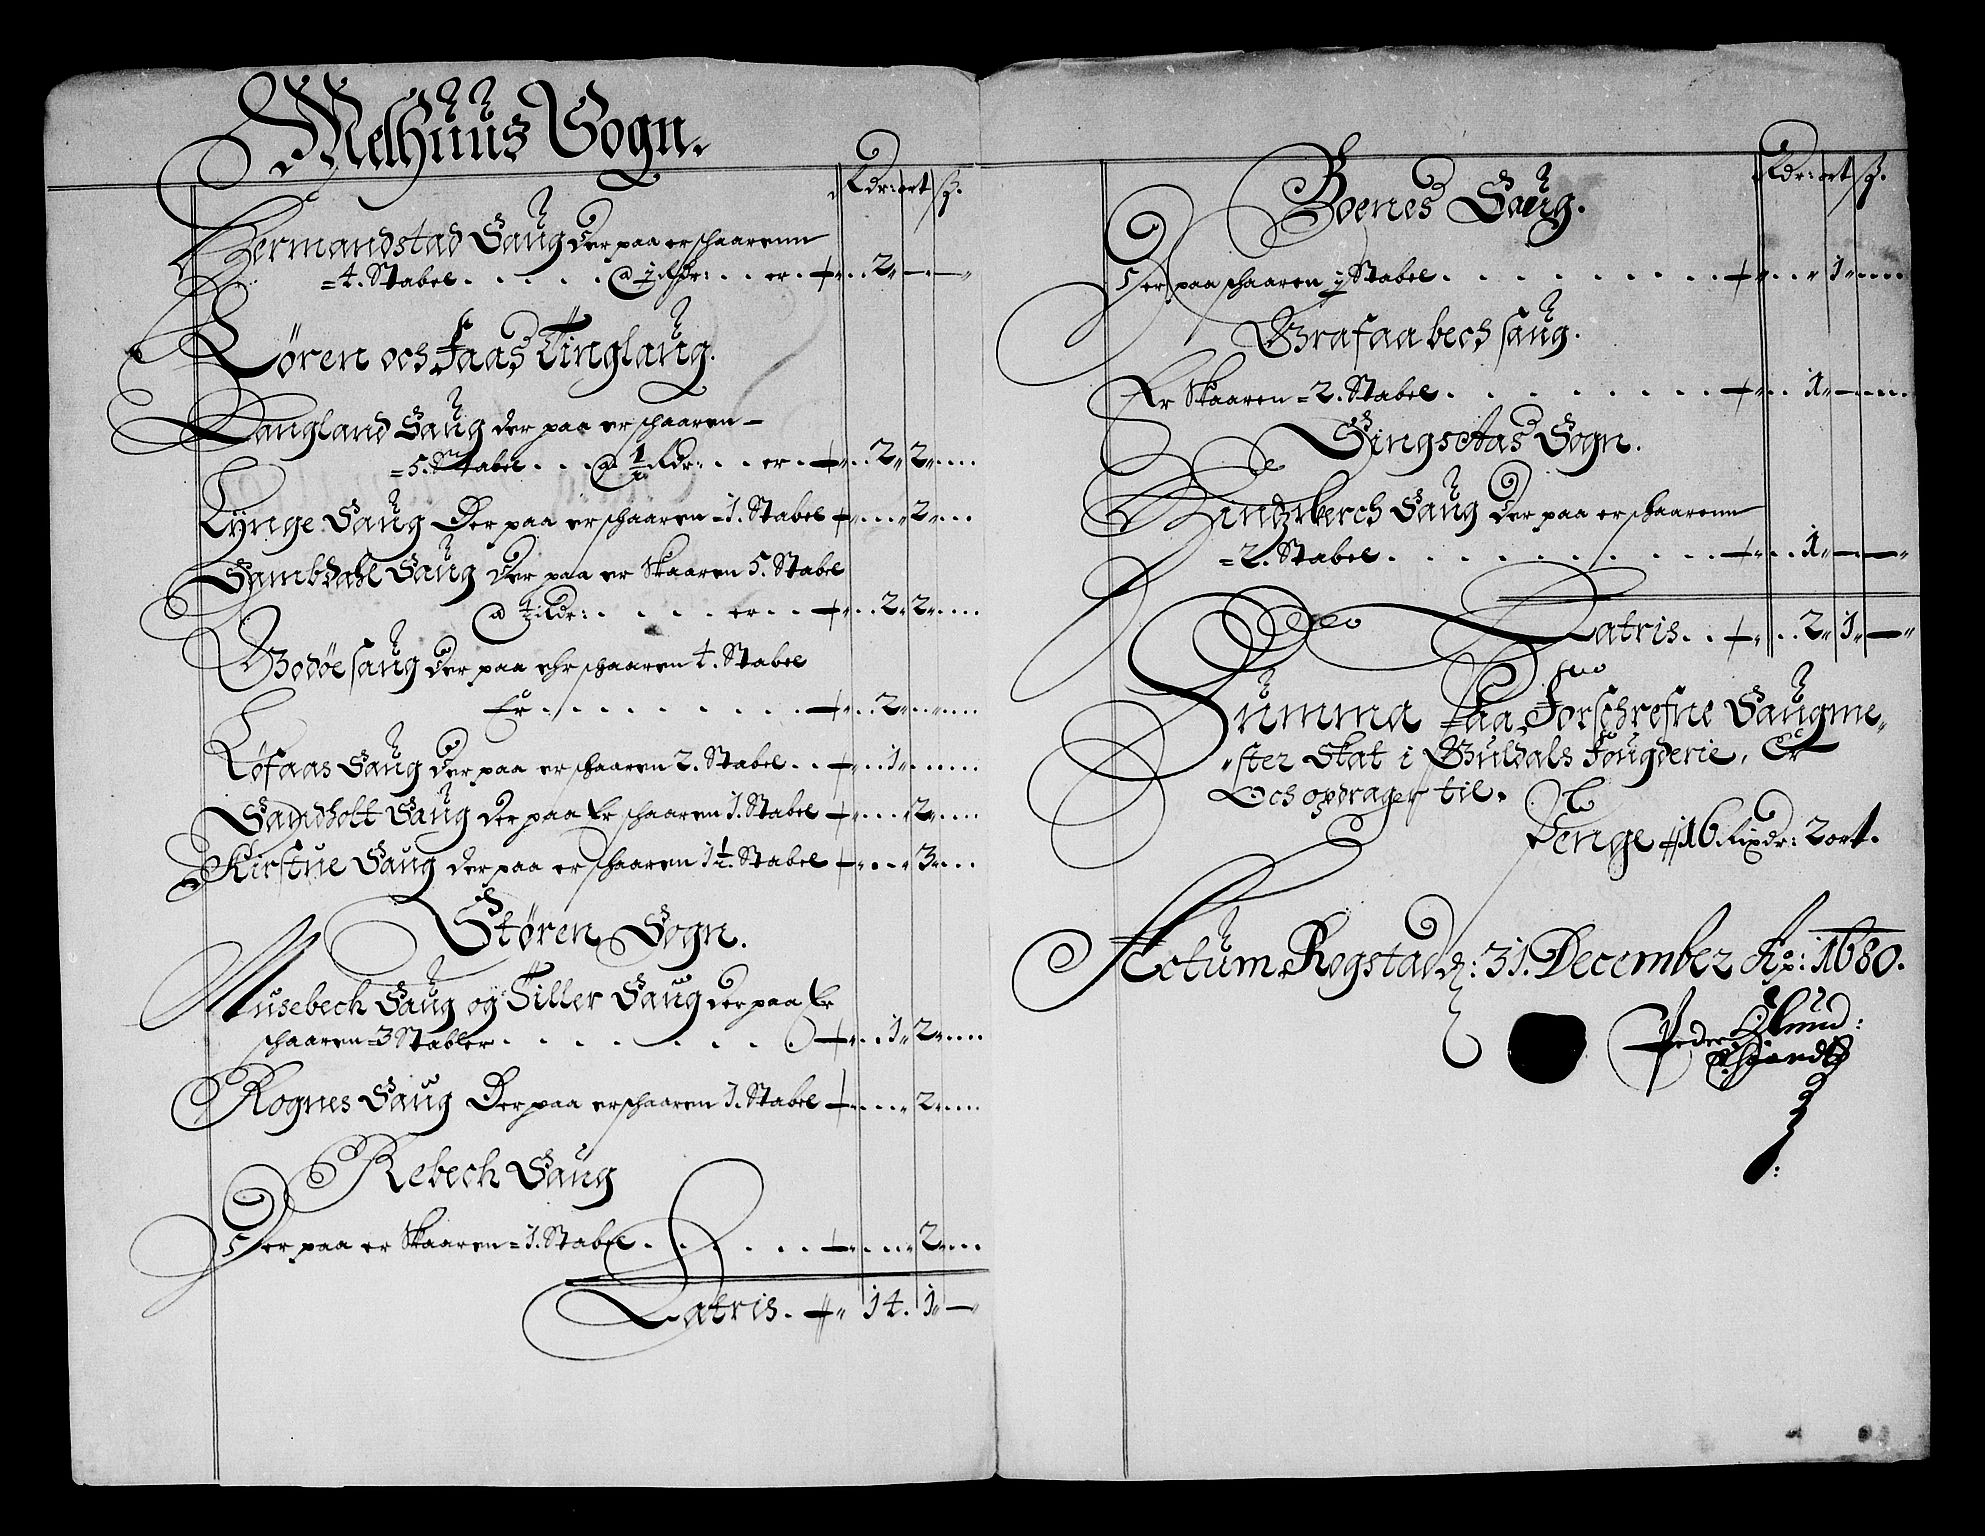 Melhuus Sogn.
Rdr: ort ß.
Hermandstad Saug der paa er schaarenn
=4. Stabel . . . . . @ ½ Rdr: . . er . 2 — —
Løren och Faas Tinglaug.
Langland Saug der paa er schaaren –
=5. Stabel . . . @ ½ Rdr: . . er . 2 2
Lÿnge Saug Der paa er schaaren =1. Stabel 2
Sambdahl Saug der paa er Skaaren 5. Stabel
@ ½ Rdr: . . . . er . . 2 2
Bodøe saug der paa ehr schaaren 4. Stabel
Er . . . . . . . . . 2
Løfaas Saug der paa er schaaren 2. Stabel . . 1
Sandhott Saug der paa Er schaaren 1. Stabel 2
Kirstue Saug der paa er schaaren 1½. Stabel 3
Støren Sogn.
Musebech Saug og Siller Saug der paa Er
schaaren =3 Stabler . . . . . . . 1 2
Rognes Saug Der paa er schaaren 1. Stabel 2
Rebech Saug
Der paa er Skaaren =1. Stabel . . . . . . 2
Latris. 14. 1 —
Rdr: ort ß.
Boenes Saug.
Der paa schaaren ½ Stabel . . . . . . . . 1
Grafaabech saug.
Er Skaaren =2. Stabel . . . . . . . . 1 —
Singsaas Sogn.
Der paa er schaarenn
=2. Stabel . . . . . . . . . . 1 — —
Latris. . . 2 1 —
Summa Paa Forschrefne Saugme„
„ster Skat i Guldals Fougderie, Er
Och opdrager til.
Penge 16 Rixdr: 2 ort.
Actum Rogstad d: 31. December Ao: 1680.
Peder